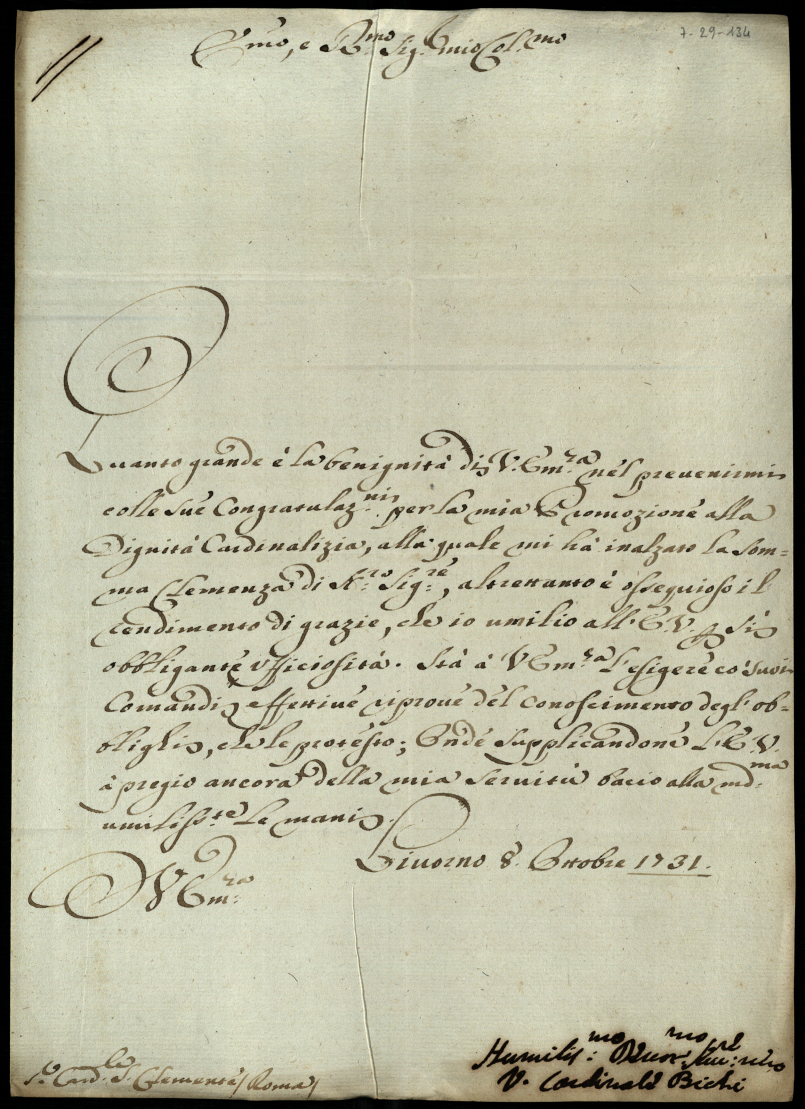 7-29-134
Emo, e Rmo Sig.r mio Col.mo
Quanto grande è la benignità di V. Em.za nel prevenirmi
colle sue Congratulaz.ni per la mia Promozione alla
Dignità Cardinalizia, alla quale mi hà inalzato la Som=
ma Clemenza di N.ro Sig.re, altrettanto è ossequioso il
rendimento di grazie, che io umilio all'E.V. p Sì
obbligante Ufficiosità. Stà à V Em.za l'esigere co' Suoi
Comandi effettive riprove del conoscimento degl'ob=
blighi, che le protesto; Onde Supplicandone l'E.V.
à pregio ancora della mia Servitù bacio alla md.ma
umiliss.te le mani.
Livorno 8. Ottobre 1731.
D V Em.za
S.r Card.le S. Clemente / Roma /
Humilis.mo Devor.mo
V. Cardinale Bichi